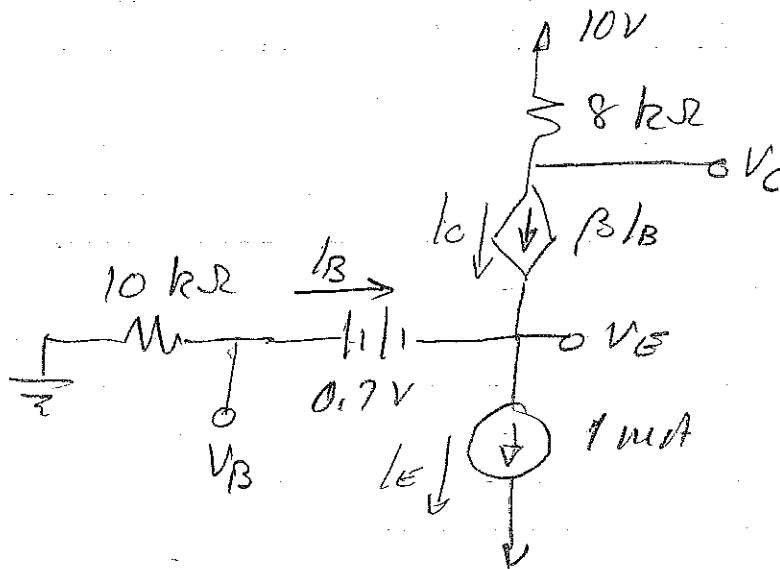 10V
8 kΩ
V_C
I_C
β I_B
10 kΩ
I_B
V_E
0.7V
V_B
1 mA
I_E